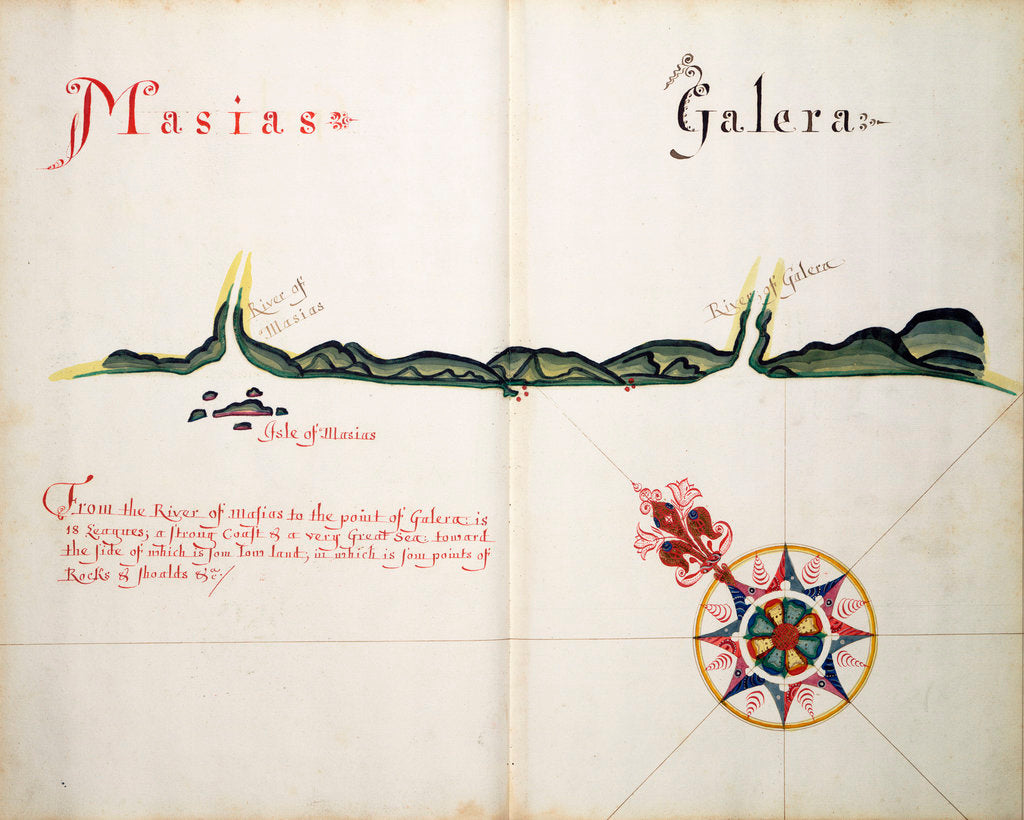 Masias
Galera
River of
Masias
River of Galera
Isle of Masias
From the River of Masias to the point of Galera: is
18 Leagues; a strong Coast & a very Great Sea: toward
the side of which is som low land; in which is som points of
Rocks & shoalds &c:/